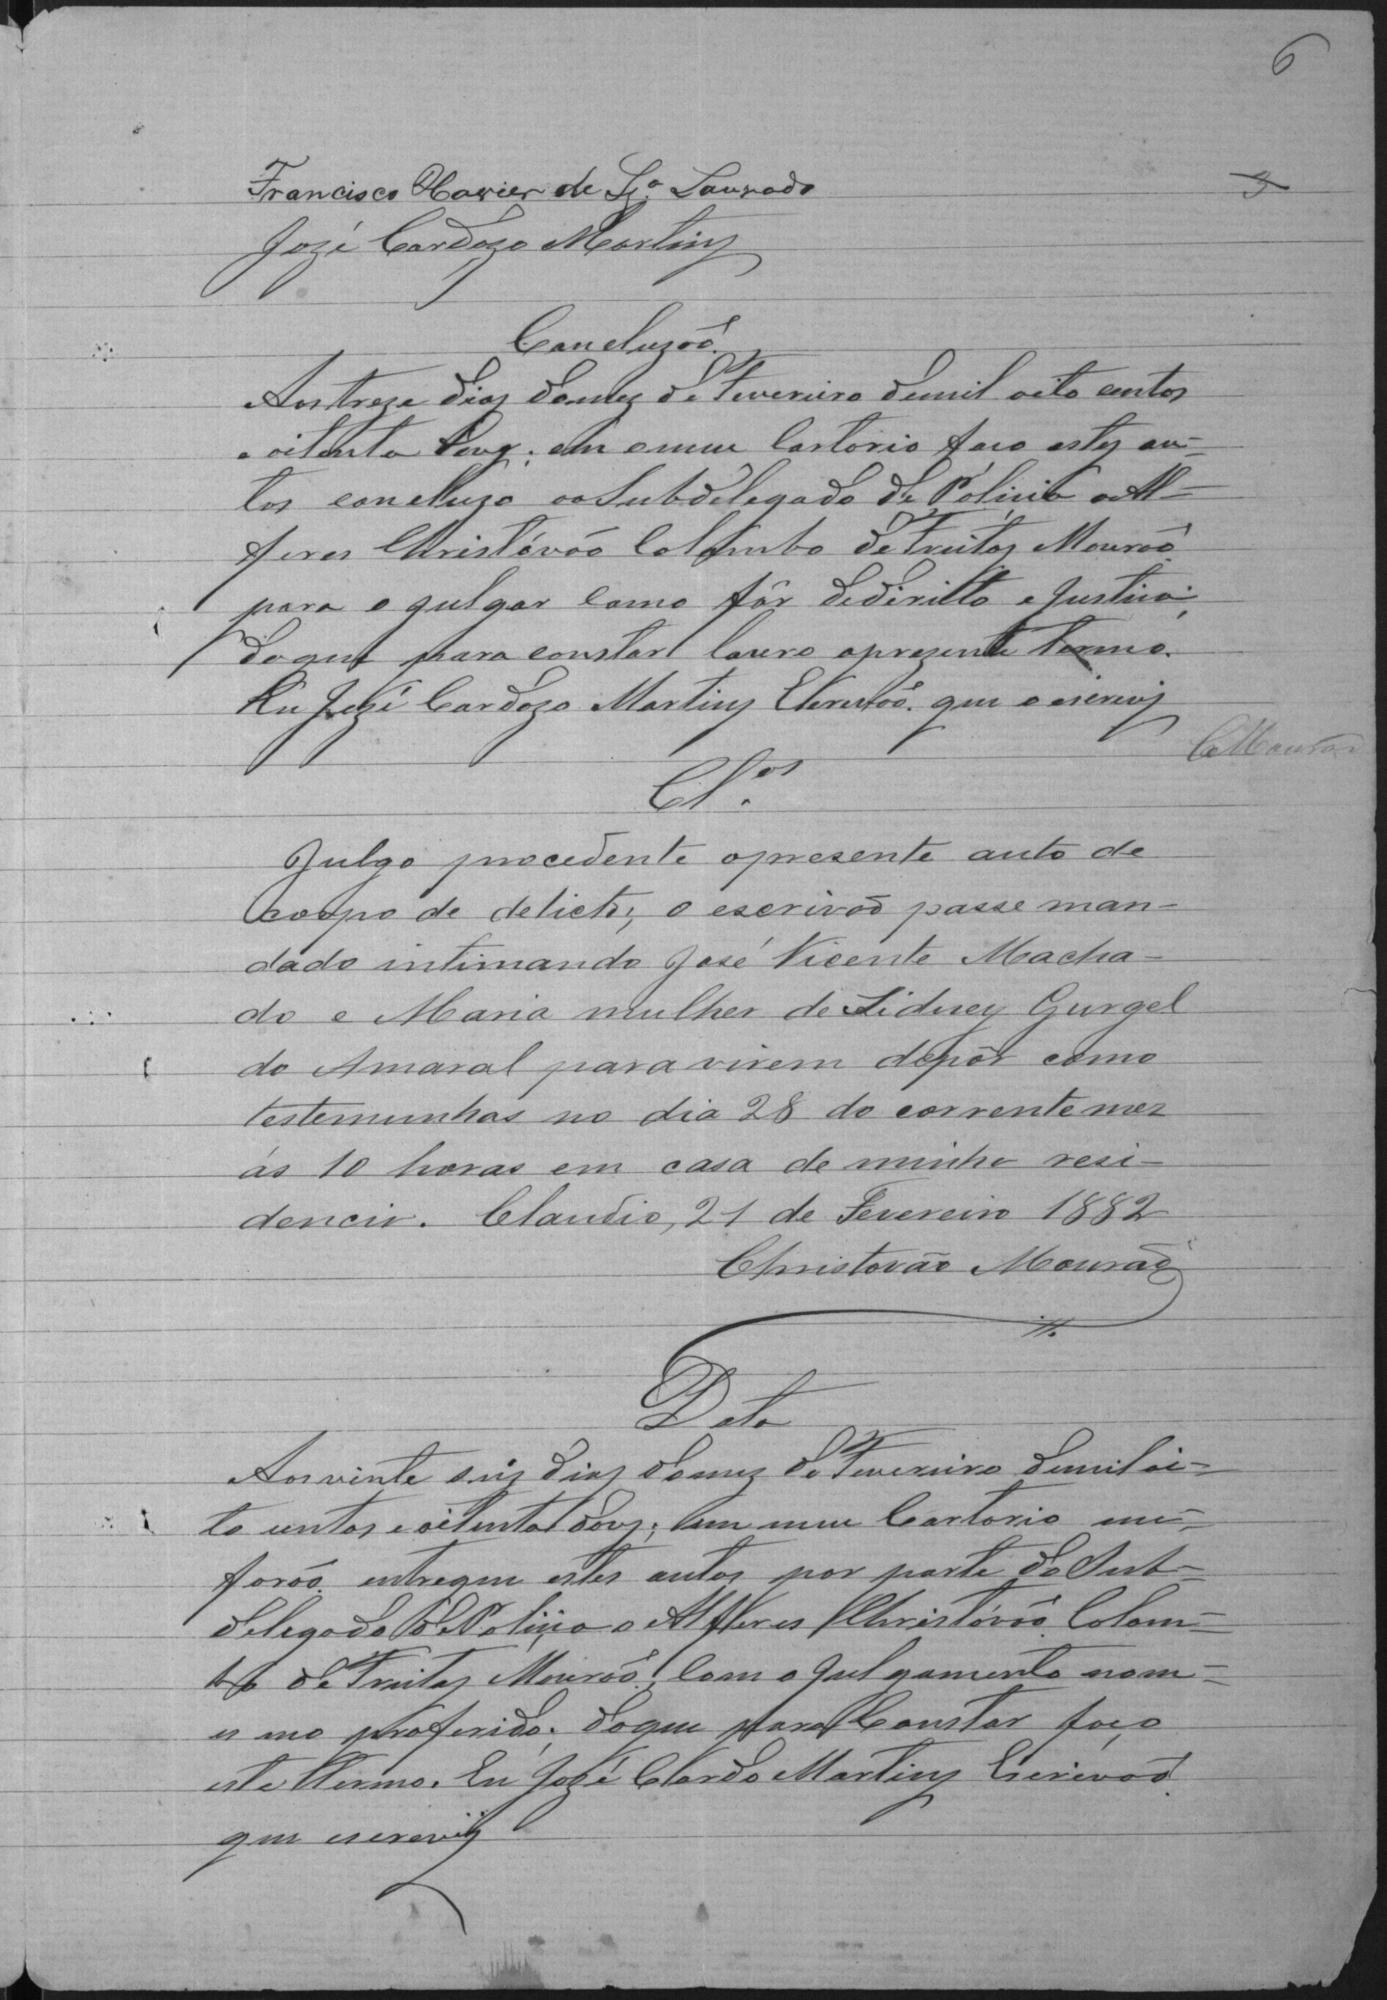 6
5
Francisco Xavier de Sz.ª Lourado
José Cardozo Martins
Concluzaõ.
Aos treze dias do mez de Fevereiro de mil oito centos
e oitenta e dous; em o meu Cartorio faço estes au-
tos concluzo ao Subdelegado de Policia o Al-
feres Christóvaõ Colombo de Freitas Mouraõ
para o julgar como fôr de dirêito e Justiça;
do que para constar lavro o prezente termo.
Eu Jozé Cardozo Martins Escrivaõ. que o escrevy
C. Mourão
Cl.os
Julgo procedente o presente auto de
corpo de delicto; o escrivaõ passe man-
dado intimando José Vicente Macha-
do e Maria mulher de Sidney Gurgel
do Amaral para virem depôr como
testemunhas no dia 28 do corrente mez
ás 10 horas em casa de minha resi-
dencia. Claudio, 21 de Fevereiro 1882
Christovão Mourão
Data
Aos vinte seis dias do mez de Fevereiro de mil oi-
to centos e oitenta dous; em meu Cartorio me
foraõ. entregue estes autos por parte do Sub-
delegado de Policia o Alferes Christóvaõ Colom-
bo de Freitas Mouraõ, com o julgamento nom-
es mo proferido; do que para Constar faço
este termo. Eu Jozé Cardo Martins Escrivaõ
que escrevy